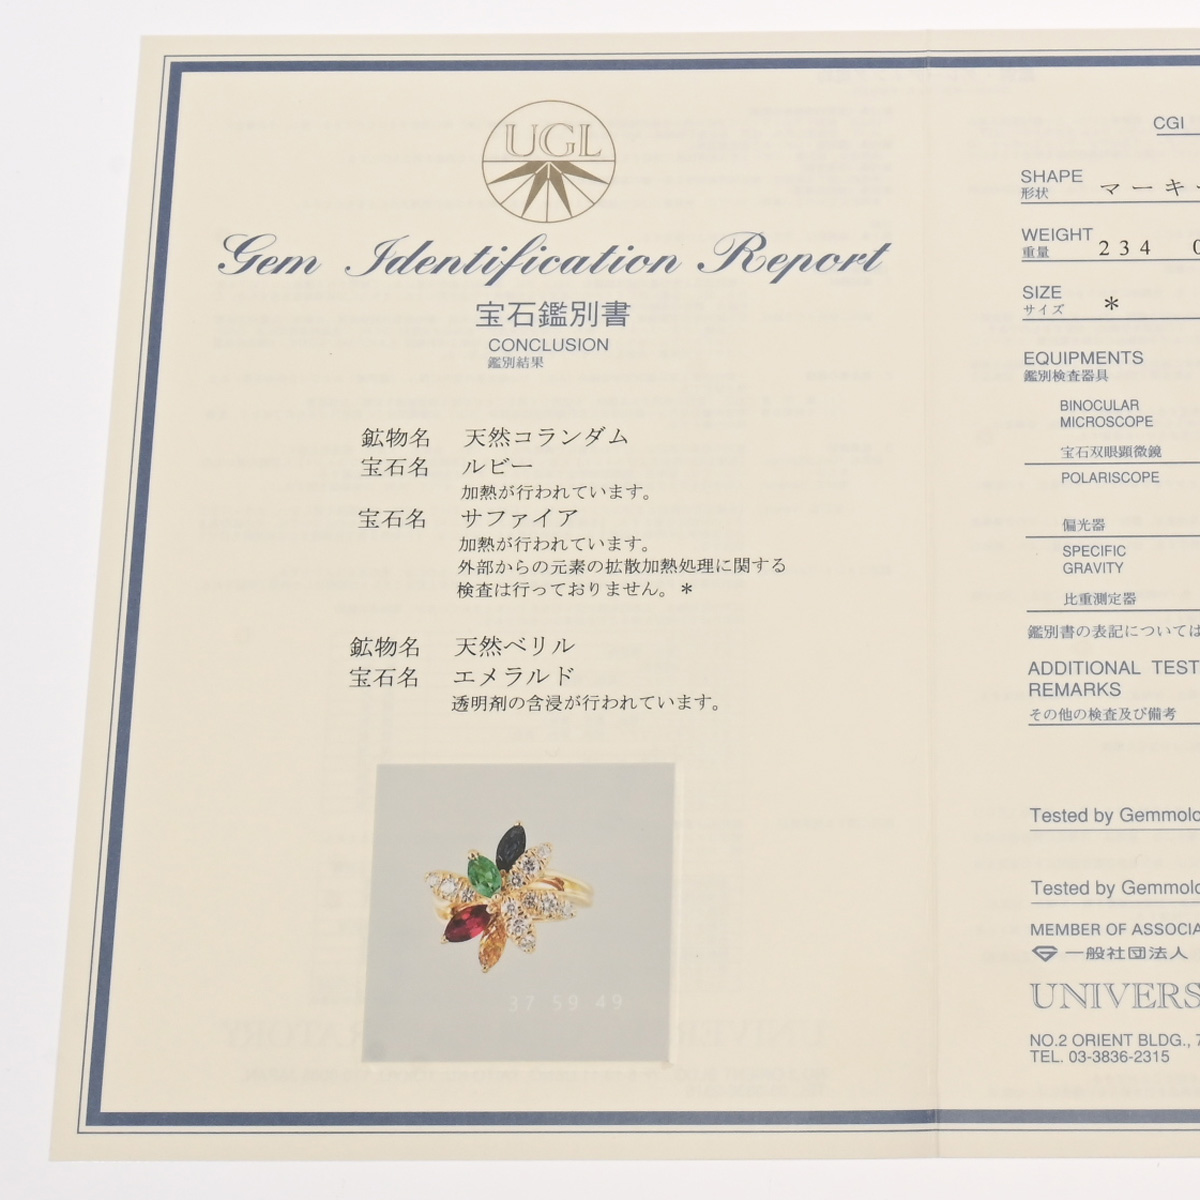 UGL
Gem Identification Report
宝石鑑別書
CONCLUSION
鑑別結果
鉱物名 天然コランダム
宝石名 ルビー
加熱が行われています。
宝石名 サファイア
加熱が行われています。
外部からの元素の拡散加熱処理に関する
検査は行っておりません。*
鉱物名 天然ベリル
宝石名 エメラルド
透明剤の含浸が行われています。
37 59 49
CGI
SHAPE
形状 マーキ
WEIGHT
重量 234 0
SIZE
サイズ *
EQUIPMENTS
鑑別検査器具
BINOCULAR
MICROSCOPE
宝石双眼顕微鏡
POLARISCOPE
偏光器
SPECIFIC
GRAVITY
比重測定器
鑑別書の表記については
ADDITIONAL TEST
REMARKS
その他の検査及び備考
Tested by Gemmolo
Tested by Gemmolo
MEMBER OF ASSOCIA
一般社団法人
UNIVERS
NO.2 ORIENT BLDG., 7
TEL. 03-3836-2315